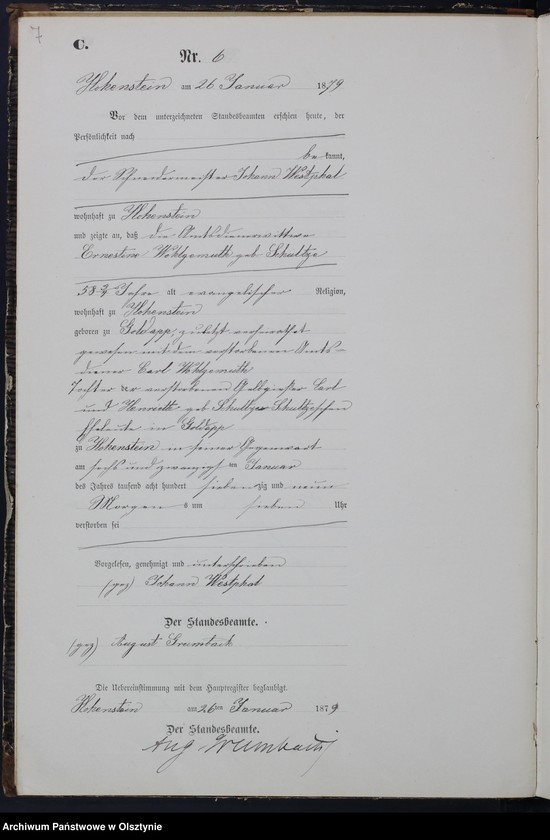 7
C.
Nr. 6
Hohenstein am 26 Januar 1879
Vor dem unterzeichneten Standesbeamten erschien heute, der
Persönlichkeit nach
be kannt,
der Schneidermeister Johann Westphal
wohnhaft zu Hohenstein
und zeigte an, daß die Amtsdienerwittwe
Ernestine Wohlgemuth geb Schultze
58 3/4 Jahre alt evangelischer Religion,
wohnhaft zu Hohenstein
geboren zu Goldapp, zuletzt verheirathet
gewesen mit dem verstorbenen Amts-
diener Carl Wohlgemuth
Tochter der verstorbenen Gelbgießer Carl
und Henriette geb Schultze Schultzeschen
Eheleute in Goldapp
zu Hohenstein in seiner Gegenwart
am sechs und zwanzigsten Januar
des Jahres tausend acht hundert siebenzig und neun
Morgens um sieben Uhr
verstorben sei
Vorgelesen, genehmigt und unterschrieben
(gez) Johann Westphal
Der Standesbeamte.
(gez) August Grumbach
Die Uebereinstimmung mit dem Hauptregister beglaubigt.
Hohenstein am 26ten Januar 1879
Der Standesbeamte.
Aug Grumbach
Archiwum Państwowe w Olsztynie